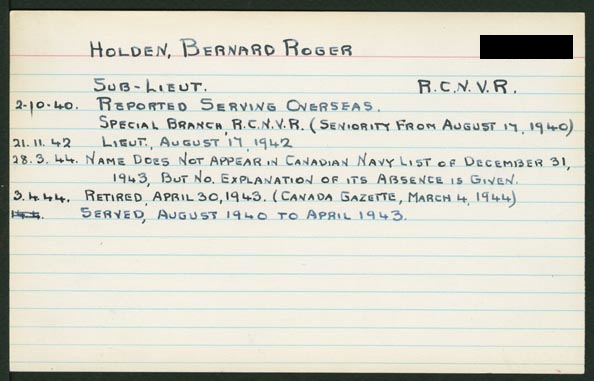 HOLDEN, BERNARD ROGER
SUB-LIEUT. R.C.N.V.R.
2-10-40. REPORTED SERVING OVERSEAS.
SPECIAL BRANCH, R.C.N.V.R. (SENIORITY FROM AUGUST 17, 1940)
21.11.42 LIEUT., AUGUST 17, 1942
28.3.44. NAME DOES NOT APPEAR IN CANADIAN NAVY LIST OF DECEMBER 31,
1943, BUT NO EXPLANATION OF ITS ABSENCE IS GIVEN.
3.4.44. RETIRED, APRIL 30, 1943. (CANADA GAZETTE, MARCH 4, 1944)
SERVED, AUGUST 1940 TO APRIL 1943.